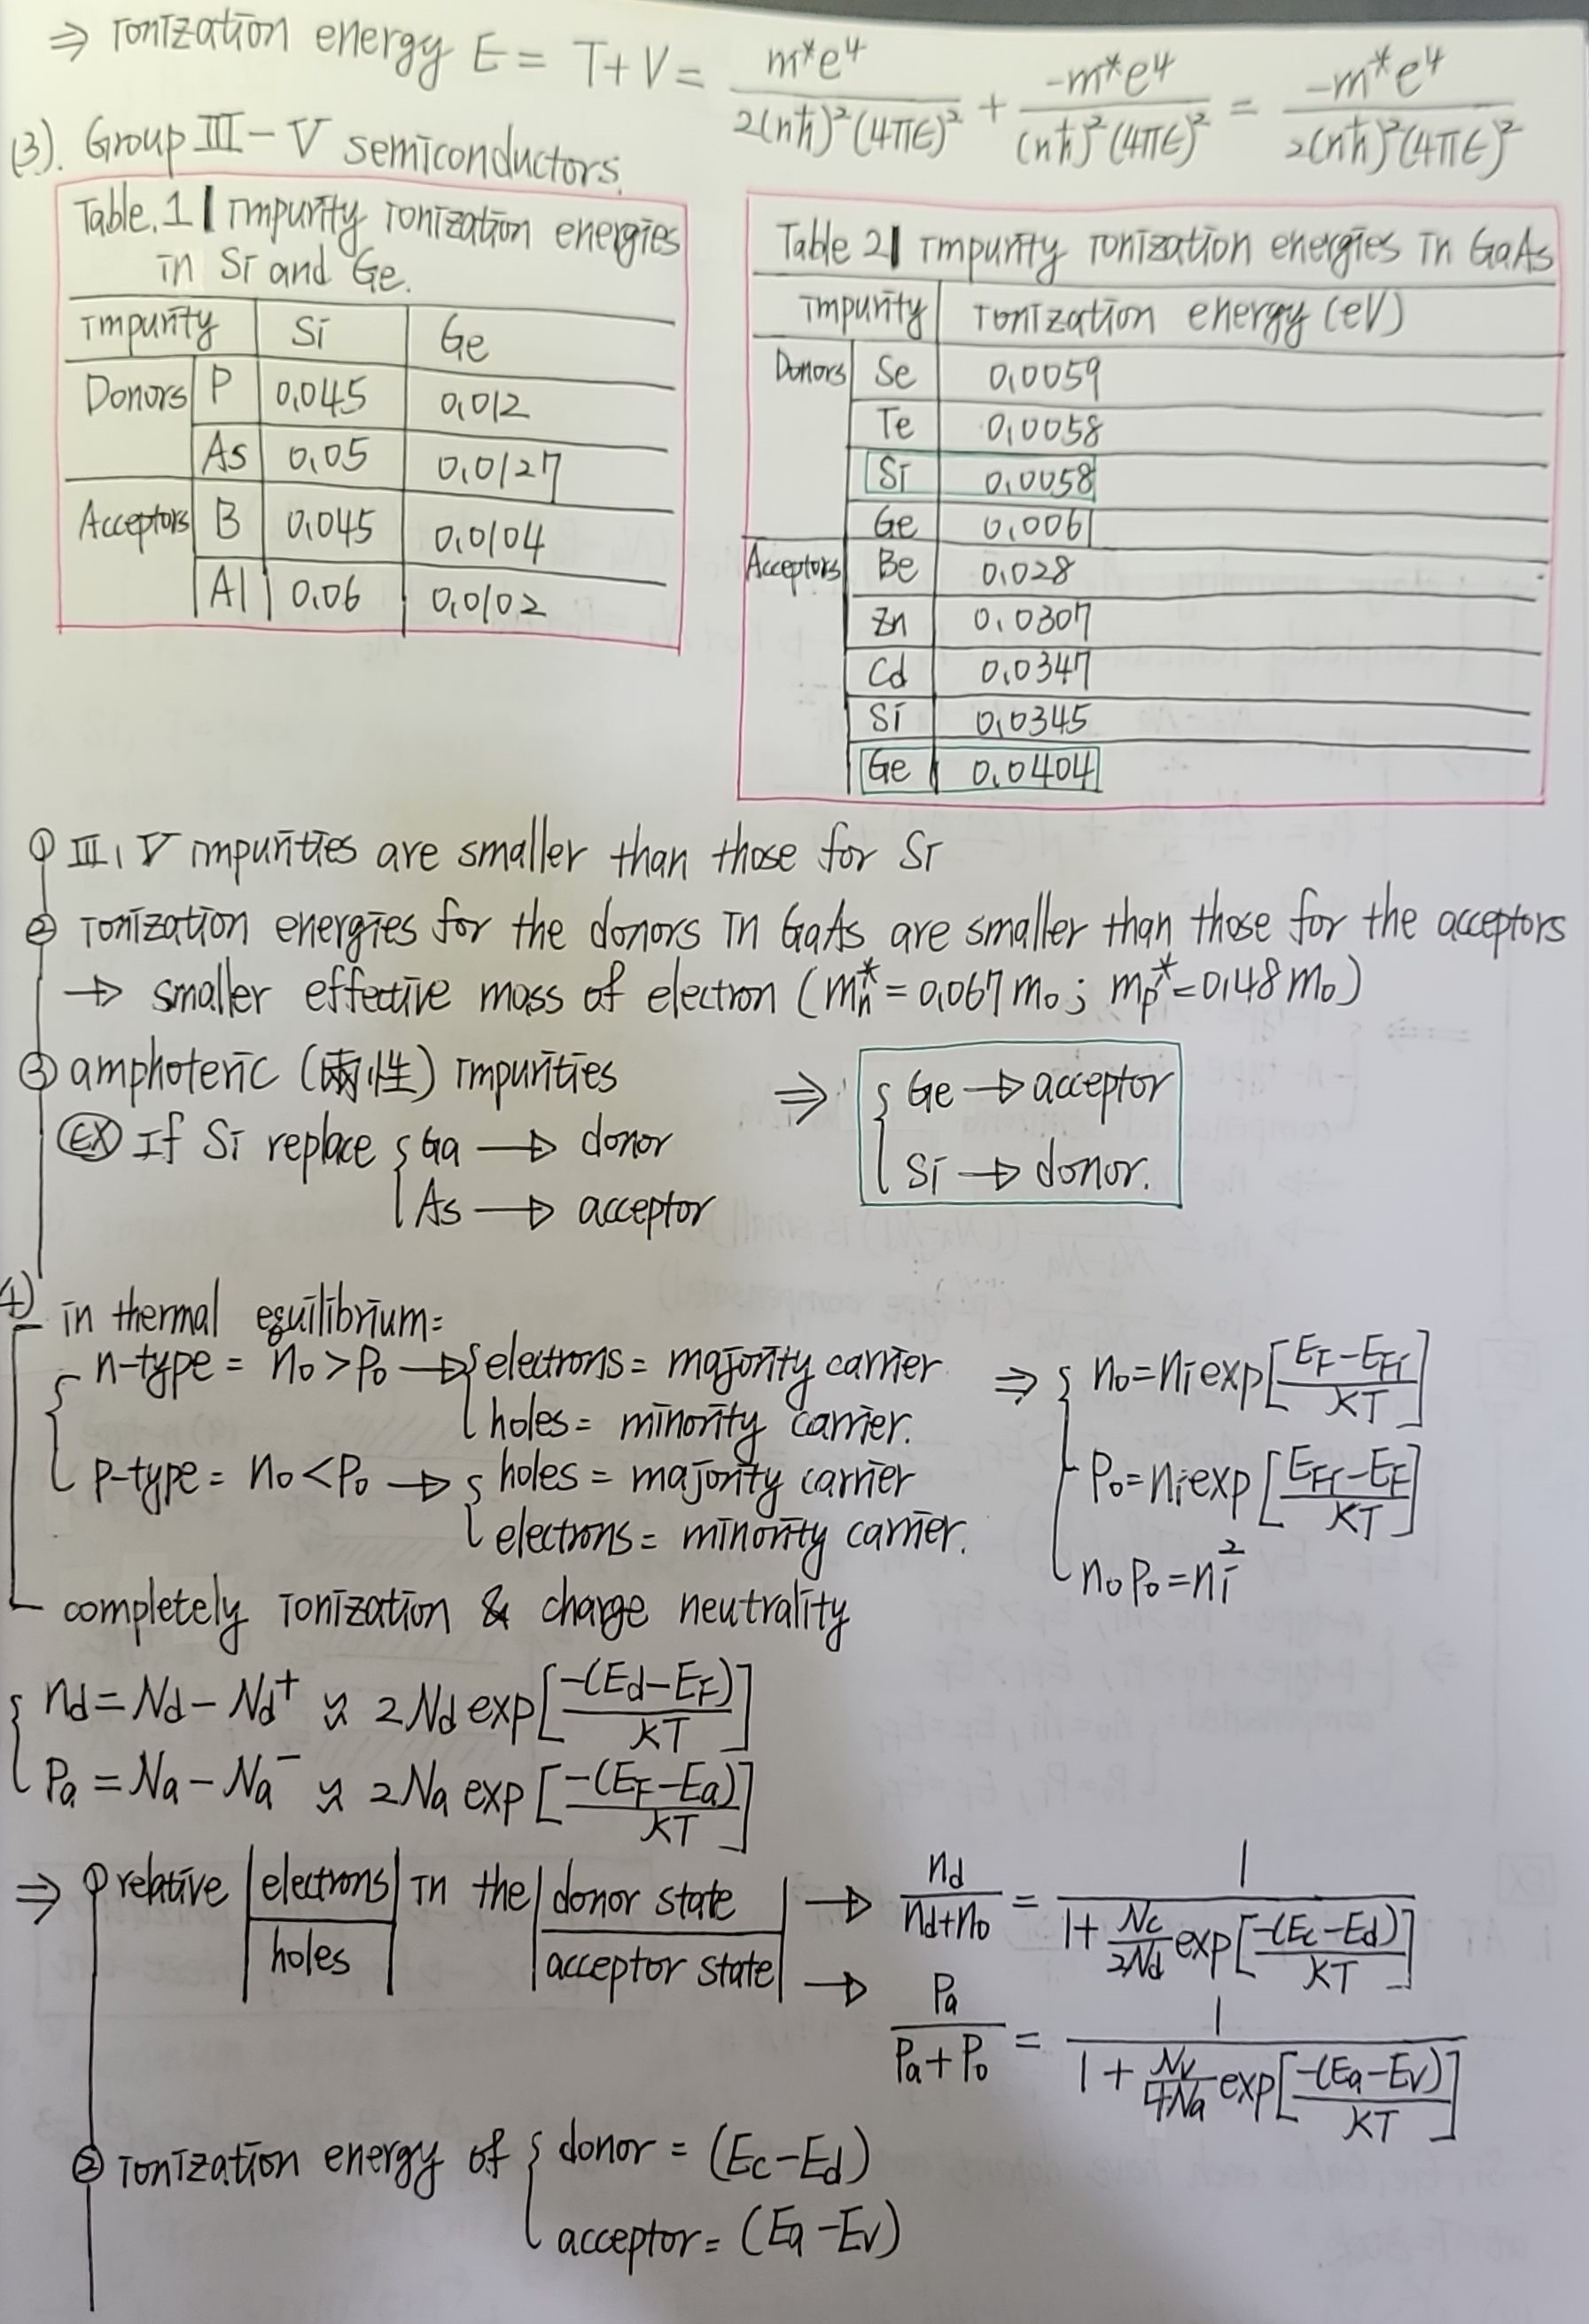 ⇒ Ionization energy E = T+V = m*e⁴/2(nħ)²(4πϵ)² + -m*e⁴/(nħ)²(4πϵ)² = -m*e⁴/2(nħ)²(4πϵ)²
(3). Group III-V semiconductors.
Table.1 | Impurity Ionization energies
in Si and Ge.
Impurity Si Ge
Donors P 0.045 0.012
As 0.05 0.0127
Acceptors B 0.045 0.0104
Al 0.06 0.0102
Table 2 | Impurity Ionization energies in GaAs
Impurity Ionization energy (eV)
Donors Se 0.0059
Te 0.0058
Si 0.0058
Ge 0.0061
Acceptors Be 0.028
Zn 0.0307
Cd 0.0347
Si 0.0345
Ge 0.0404
① III, V impurities are smaller than those for Si
② Ionization energies for the donors in GaAs are smaller than those for the acceptors
→ smaller effective mass of electron (mₙ* = 0.067 m₀; mₚ* = 0.48 m₀)
③ amphoteric (兩性) Impurities
EX If Si replace { Ga → donor
As → acceptor
⇒ { Ge → acceptor
Si → donor.
4) in thermal equilibrium=
n-type = n₀ > P₀ → { electrons = majority carrier
holes = minority carrier.
p-type = n₀ < P₀ → { holes = majority carrier
electrons = minority carrier.
⇒ { n₀ = nᵢ exp[(E_F - E_Fi)/KT]
P₀ = nᵢ exp[(E_Fi - E_F)/KT]
n₀P₀ = nᵢ²
completely ionization & charge neutrality
{ n_d = N_d - N_d⁺ ≈ 2N_d exp[-(E_d - E_F)/KT]
P_a = N_a - N_a⁻ ≈ 2N_a exp[-(E_F - E_a)/KT]
⇒ ① relative | electrons | in the | donor state | → n_d/(n_d+n₀) = 1/(1 + N_c/2N_d exp[-(E_c - E_d)/KT])
holes | acceptor state | → P_a/(P_a+P₀) = 1/(1 + N_v/4N_a exp[-(E_a - E_v)/KT])
② Ionization energy of { donor = (E_c - E_d)
acceptor = (E_a - E_v)